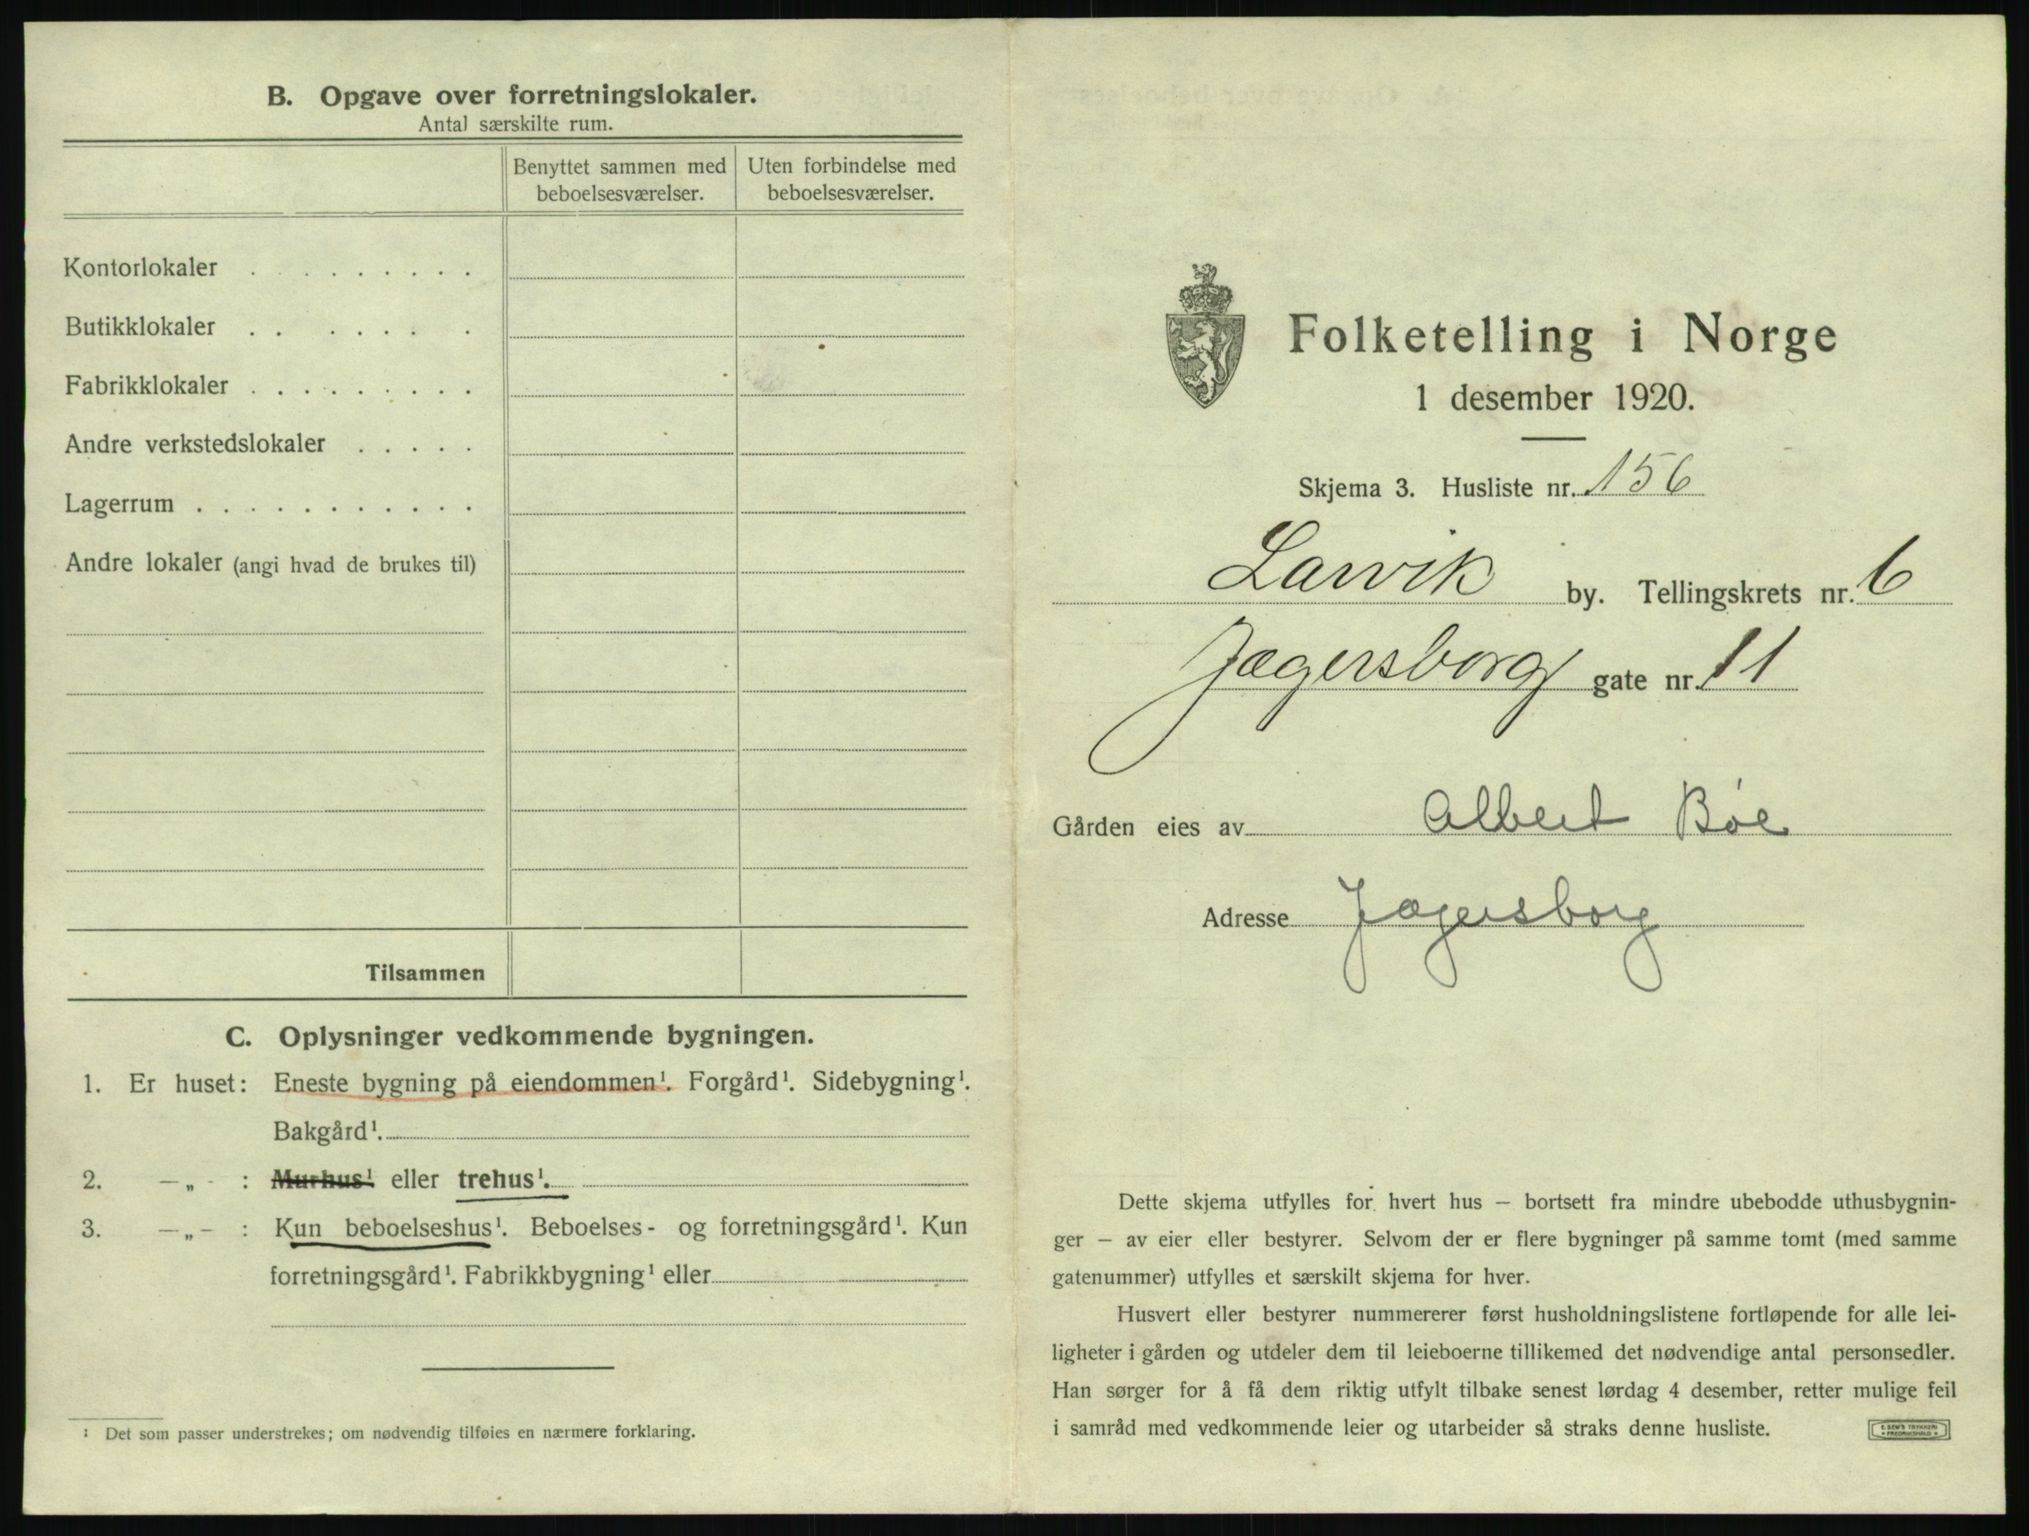 B. Opgave over forretningslokaler.
Antal særskilte rum.
Benyttet sammen med beboelsesværelser.
Uten forbindelse med beboelsesværelser.
Kontorlokaler . . . . . . . . .
Butikklokaler . . . . . . .
Fabrikklokaler . . . . . . . . .
Andre verkstedslokaler . . . . .
Lagerrum . . . . . . . . . . .
Andre lokaler (angi hvad de brukes til)
Tilsammen
C. Oplysninger vedkommende bygningen.
1. Er huset: Eneste bygning på eiendommen¹. Forgård¹. Sidebygning¹.
Bakgård¹.
2. —„- : Murhus¹ eller trehus¹.
3. —„- : Kun beboelseshus¹. Beboelses- og forretningsgård¹. Kun
forretningsgård¹. Fabrikkbygning¹ eller
¹ Det som passer understrekes; om nødvendig tilføies en nærmere forklaring.
Folketelling i Norge
1 desember 1920.
Skjema 3. Husliste nr. 156
Larvik by. Tellingskrets nr. 6
Jægersborg gate nr. 11
Gården eies av Albert Bøe
Adresse Jægersborg
Dette skjema utfylles for hvert hus — bortsett fra mindre ubebodde uthusbygnin-
ger — av eier eller bestyrer. Selvom der er flere bygninger på samme tomt (med samme
gatenummer) utfylles et særskilt skjema for hver.
Husvert eller bestyrer nummererer først husholdningslistene fortløpende for alle lei-
ligheter i gården og utdeler dem til leieboerne tillikemed det nødvendige antal personsedler.
Han sørger for å få dem riktig utfylt tilbake senest lørdag 4 desember, retter mulige feil
i samråd med vedkommende leier og utarbeider så straks denne husliste.